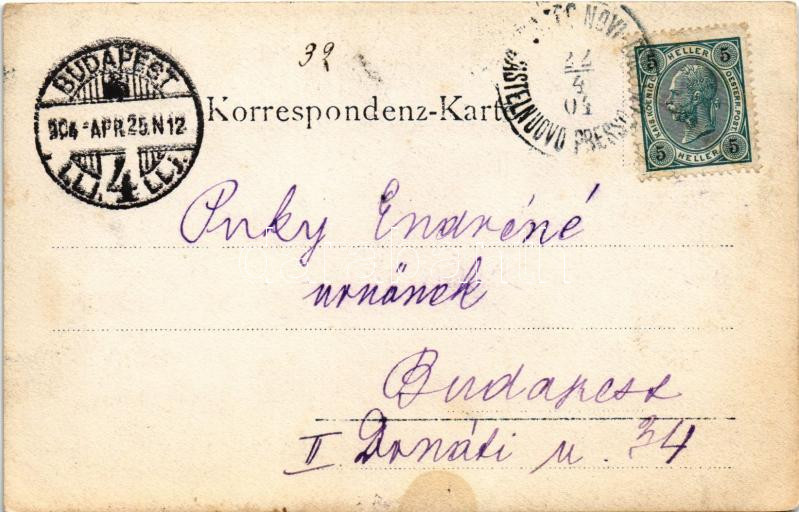 39
BUDAPEST
904-APR.25.N12
4
Korrespondenz-Karte
NOVI
22
4
04
CASTELNUOVO PRESSO
5 HELLER 5
KAIS. KOENIGL. OESTERR. POST.
5 HELLER 5
Puky Endréné
urnőnek
Budapest
II Donáti u. 34